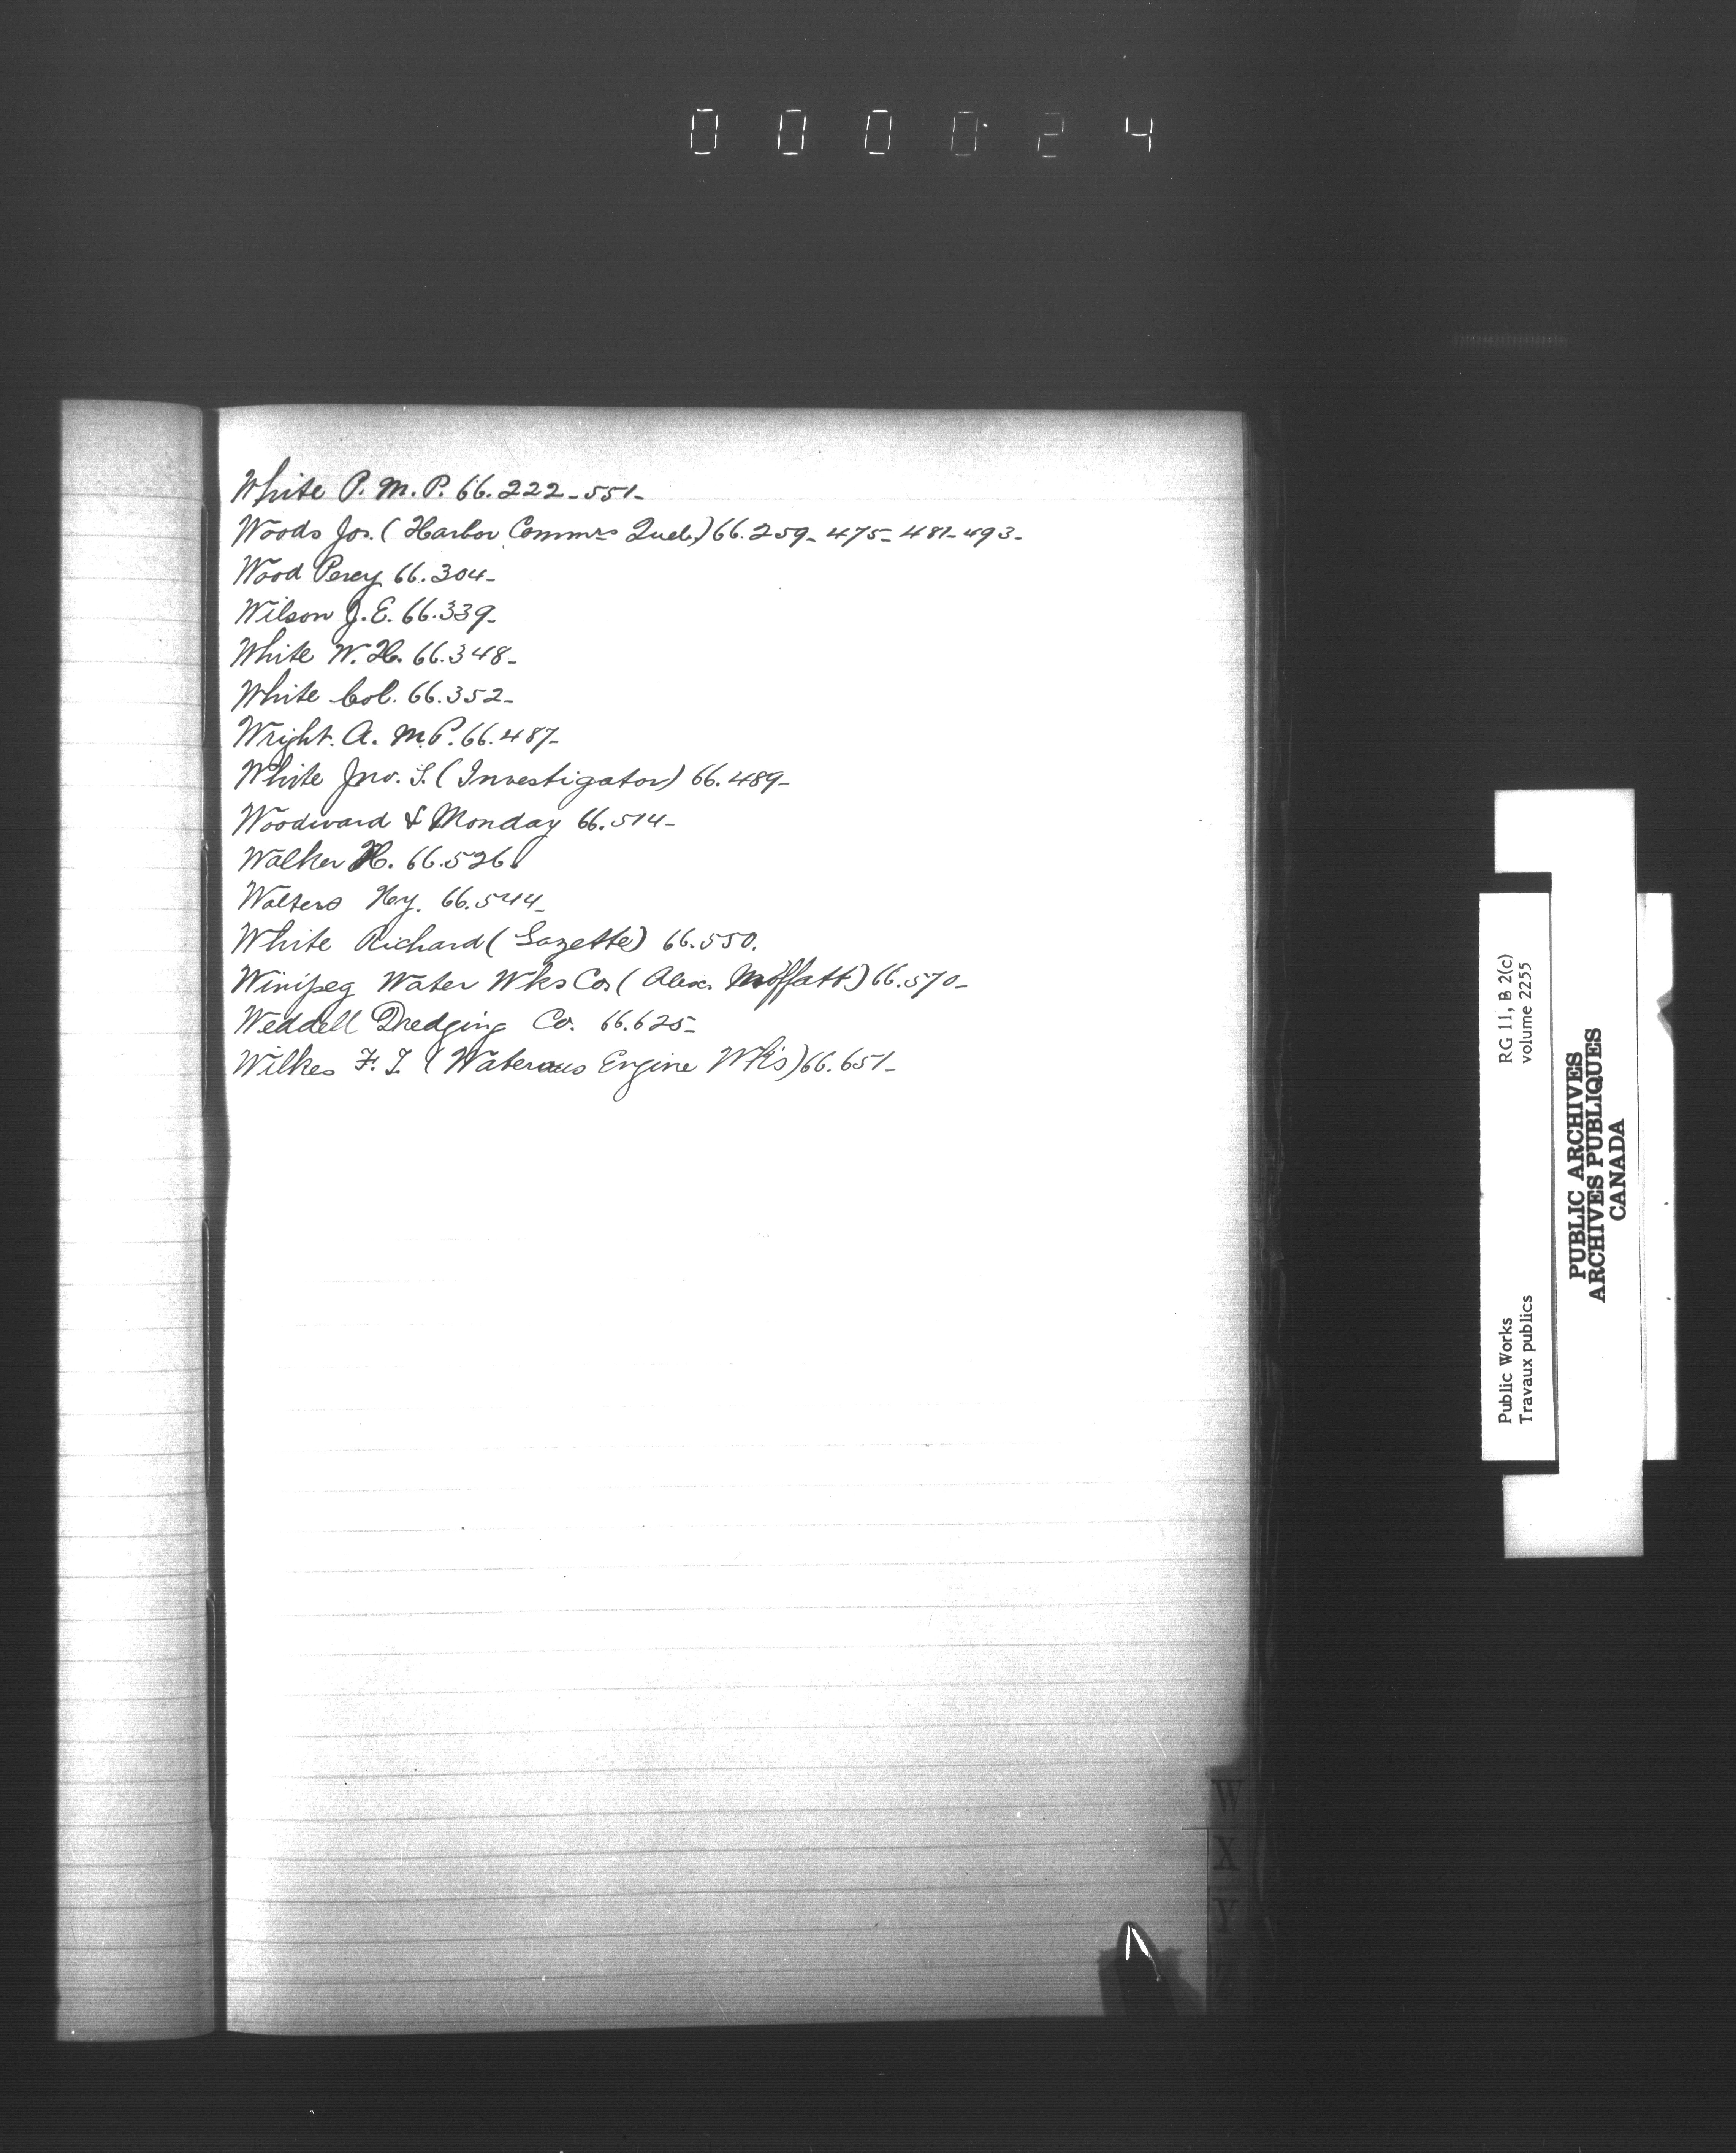 000024
White P. M.P. 66.222-551-
Woods Jos. (Harbor Commrs Queb.) 66.259-475-481-493-
Wood Percy 66.304-
Wilson J.E. 66.339-
White W.H. 66.348-
White Col. 66.352-
Wright A. M.P. 66.487-
White Jno. S. (Investigator) 66.489-
Woodward & Monday 66.514-
Walker H. 66.526
Walters Hy. 66.544-
White Richard (Gazette) 66.550.
Winipeg Water Wks Co. (Alex. Moffatt) 66.570-
Weddell Dredging Co. 66.625-
Wilkes F. I. (Waterous Engine Wks) 66.651-
W
X
Y
Z
Public Works RG 11, B 2(c)
Travaux publics volume 2255
PUBLIC ARCHIVES
ARCHIVES PUBLIQUES
CANADA